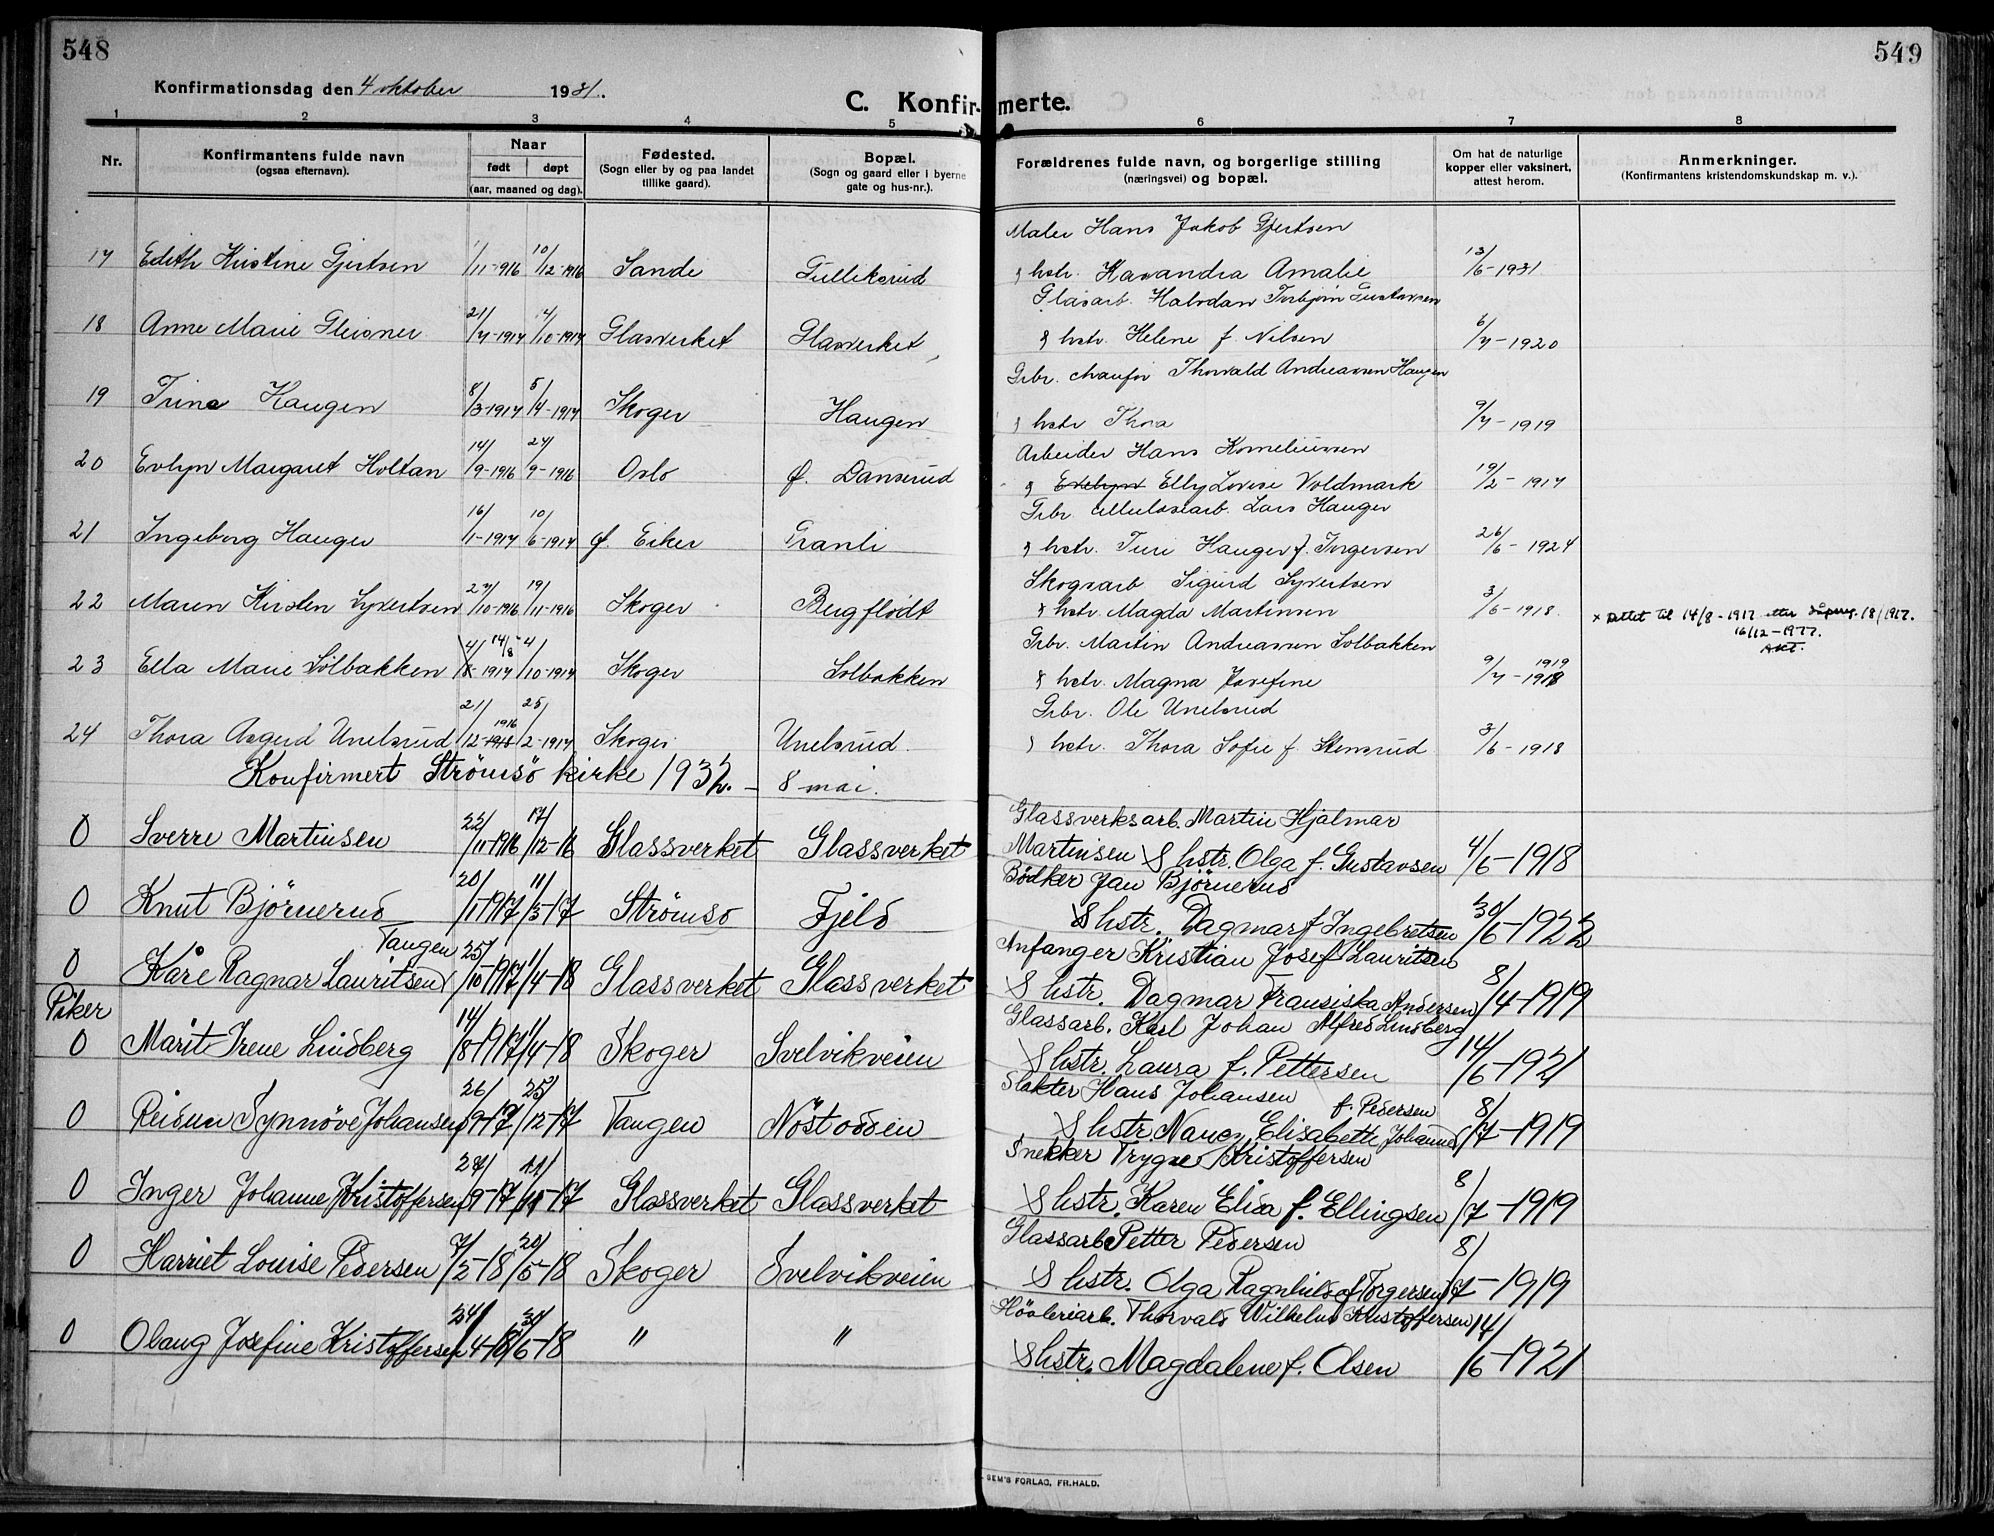 548
549
Konfirmationsdag den 4 oktober 1931.
C. Konfirmerte.
1 2 3 4 5 6 7 8
Nr.
Konfirmantens fulde navn
(ogsaa efternavn).
Naar
født døpt
(aar, maaned og dag).
Fødested.
(Sogn eller by og paa landet
tillike gaard).
Bopæl.
(Sogn og gaard eller i byerne
gate og hus-nr.).
Forældrenes fulde navn, og borgerlige stilling
(næringsvei) og bopæl.
Om hat de naturlige
kopper eller vaksinert,
attest herom.
Anmerkninger.
(Konfirmantens kristendomskundskap m. v.).
Maler Hans Jakob Gjertsen
17 Edith Kristine Gjertsen 1/11-916 10/12-1916 Sande Gulliksrud & hstr. Kasandra Amalie 13/6-1931
Glasarb. Halvdan Torbjørn Gustavsen
18 Anne Marie Gleisner 21/7-1917 14/10-1917 Glasverket Glasverket, & hstr. Helene f. Nilsen 6/7-1920
Grbr. chaufør Thorvald Andreassen Haugen
19 Trine Haugen 8/3-1917 5/4-1917 Skoger Haugen & hstr Thora 9/7-1919
Arbeider Hans Korneliussen
20 Evlyn Margaret Holtan 14/9-1916 24/9-1916 Oslo Ø. Dansrud & Evelyn Elly Lovise Voldmark 19/2-1917
Grbr. celluloserb. Lars Hauger
21 Ingeborg Hauger 16/1-1917 10/6-1917 Ø. Eiker Granli & hstr. Turi Hauger f. Torgersen 26/6-1924
Skogsarb Sigurd Syvertsen
22 Maren Kirsten Syvertsen 27/10-1916 19/11-1916 Skoger Bergflødt & hstr. Magda Martinsen 3/6-1918.
x Rettet til 14/8-1917 etter dåpsreg. 18/1917.
16/12-1977.
Grbr. Martin Andreassen Solbakken
23 Ella Marie Solbakken 4/8-1917 14/8 4/10-1917 Skoger Solbakken & hstr. Magna Josefine 9/7-1918 1919
Grbr. Ole Unelsrud
24 Thora Asgerd Unelsrud 21/12-1918 1916 25/2-1917 Skoger. Unelsrud. & hstr. Thora Sofie f. Stensrud 3/6-1918
Konfirmert Strømsø kirke 1932. – 8 mai.
Glassverksarb. Martin Hjalmar
0 Sverre Martinsen 22/11-1916 17/12-16 Glassverket Glassverket Martinsen & hstr. Olga f. Gustavsen 4/6-1918
Bødker Jan Bjørnerud
0 Knut Bjørnerud 20/1-1917 11/3-17 Strømsø Fjeld & hstr. Dagmar f Ingebretsen 30/6-1922
Tangen
Anfanger Kristian Josef Lauritsen
0 Kåre Ragnar Lauritsen 25/10-1917 1/4-18 Glassverket Glassverket & hstr. Dagmar Fransiska Andersen 8/4-1919
Piker
Glassarb. Karl Johan Alfred Lindberg
0 Marit Irene Lindberg 14/8-1917 1/4-18 Skoger Svelvikveien & hstr. Laura f. Pettersen 14/6-1921
Slakter Hans Johansen
0 Reidun Synnøve Johansen 26/9-17 25/12-17 Tangen Nøstodden & hstr. Nancy Elisabeth Johansen f. Pedersen 8/7-1919
Snekker Trygve Kristoffersen
0 Inger Johanne Kristoffersen 27/9-17 11/11-17 Glassverket Glassverket & hstr. Karen Elisa f. Ellingsen 8/7-1919
Glassarb. Petter Pedersen
0 Harriet Louise Pedersen 7/2-18 20/5-18 Skoger Svelvikveien & hstr. Olga Ragnhild f Torgersen 8/7-1919
Høvleriarb. Thorvald Wilhelm Kristoffersen
0 Olaug Josefine Kristoffersen 24/4-18 30/6-18 " " & hstr. Magdalene f. Olsen 14/6-1921
SEM'S FORLAG, FR.HALD.